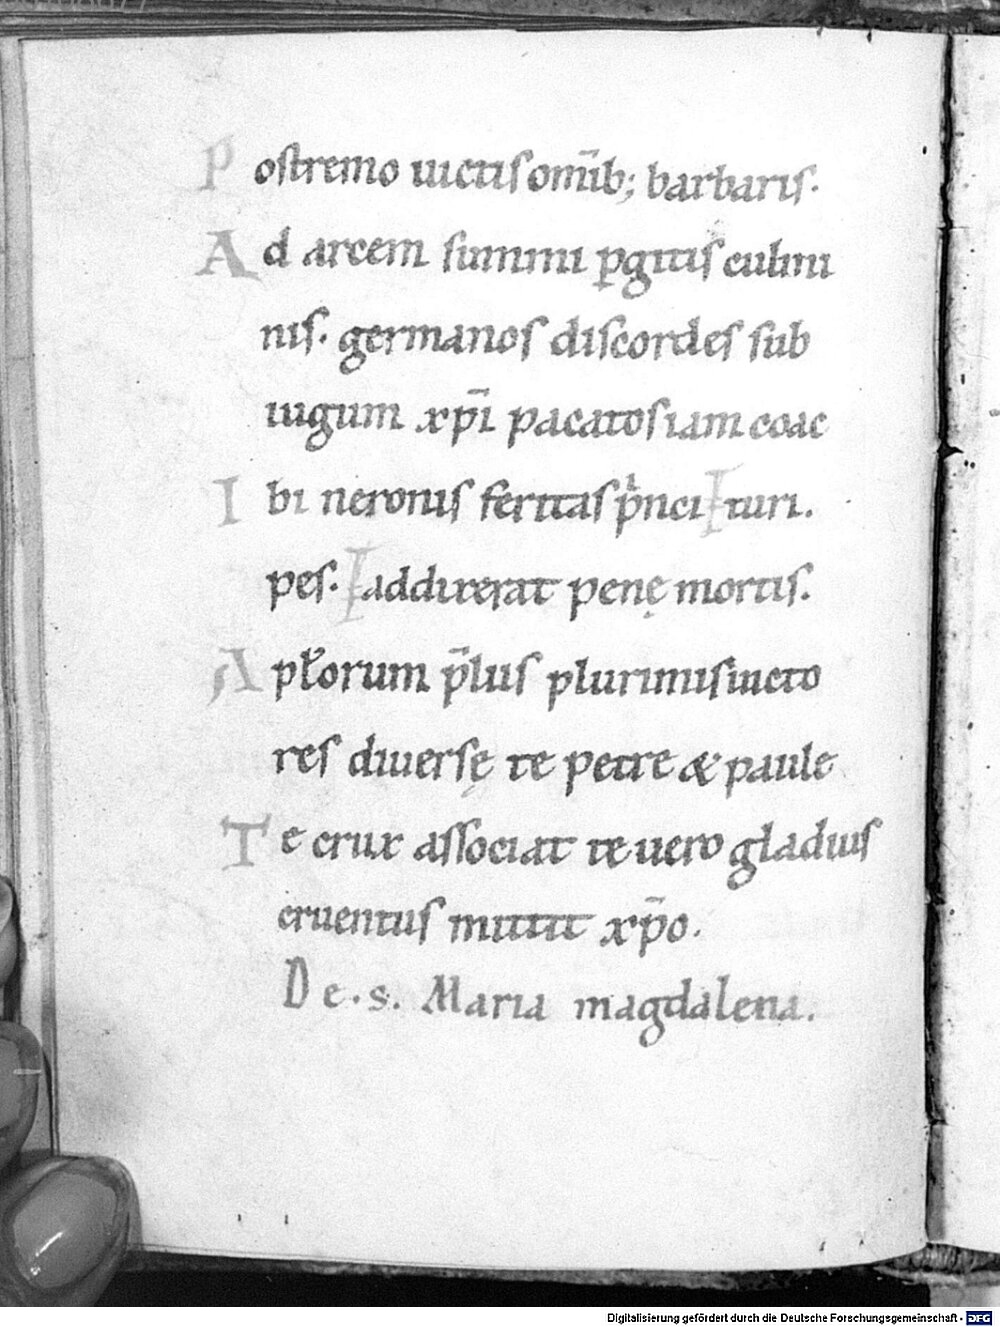 Postremo uictis om̄ib; barbaris.
Ad arcem summi ꝑgitis culmi
nis. germanos discordes sub
iugum xp̄i pacatos iam coac
Ibi neronis feritas pͥnci turi.
pes. adduxerat penę mortis.
Apłorum p̄lus plurimis uicto
res diuersę te petre & paule
Te crux associat te uero gladius
cruentus mittit xp̄o.
De .s. Maria magdalena.
Digitalisierung gefördert durch die Deutsche Forschungsgemeinschaft - DFG